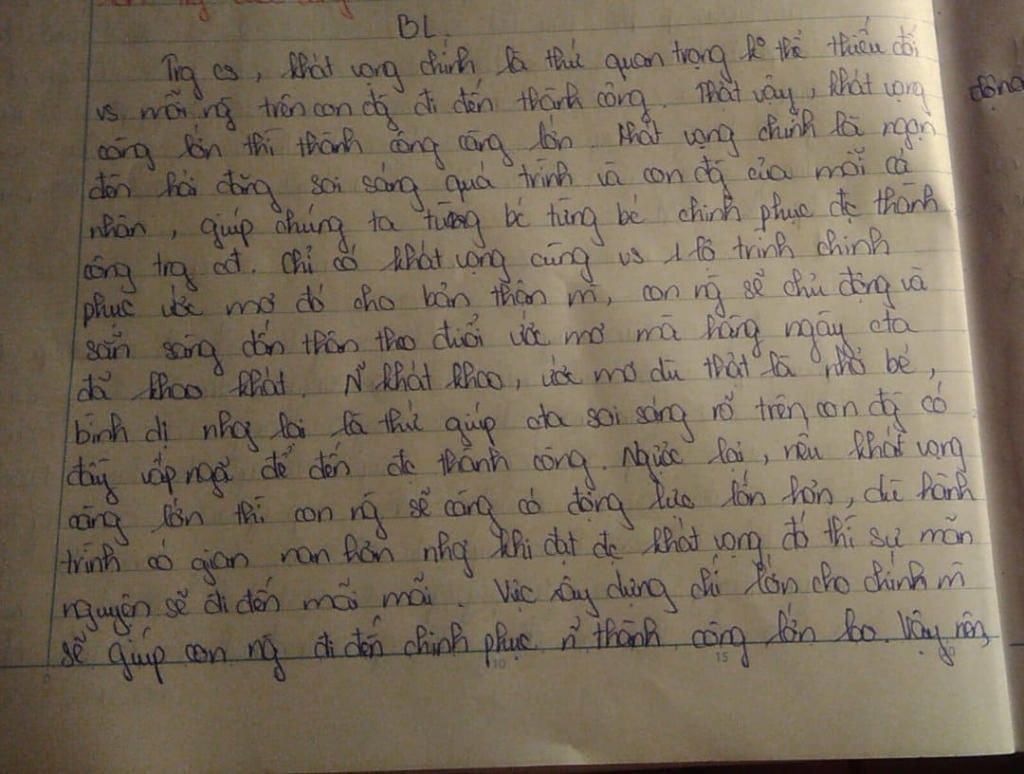 BL.
Trg cs, khát vọng chính là thứ quan trọng k thể thiếu đối
vs mỗi ng trên con đg đi đến thành công. Thật vậy, khát vọng
càng lớn thì thành công càng lớn. Khát vọng chính là ngọn
đèn hải đăng soi sáng quá trình và con đg của mỗi cá
nhân, giúp chúng ta từng bc từng bc chinh phục đc thành
công trg cđ. Chỉ có khát vọng cùng vs 1 lộ trình chinh
phục ước mơ đó cho bản thân m, con ng sẽ chủ động và
sẵn sàng dấn thân theo đuổi ước mơ mà hằng ngày cta
đã khao khát. N~ khát khao, ước mơ dù thật là nhỏ bé,
bình dị nhg lại là thứ giúp cta soi sáng rõ trên con đg có
đầy vấp ngã để đến đc thành công. Ngược lại, nếu khát vọng
càng lớn thì con ng sẽ càng có động lực lớn hơn, dù hành
trình có gian nan hơn nhg khi đạt đc khát vọng đó thì sự mãn
nguyện sẽ đi đến mãi mãi. Việc xây dựng chí lớn cho chính m
sẽ giúp con ng đi đến chinh phục n~ thành công lớn lao. Vậy nên,
10 15